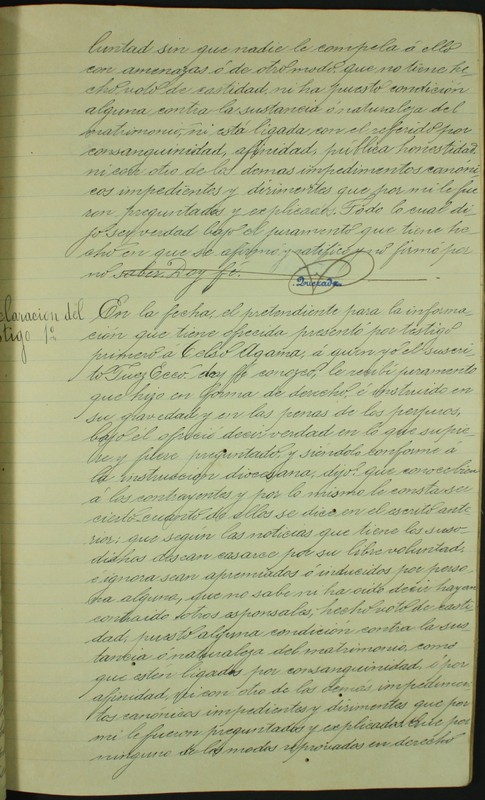 luntad sin que nadie le compela á ello
con amenazas ó de otro modo, que no tiene he
cho voto de castidad, ni ha puesto condición
alguna contra la sustancia ó naturaleza del
matrimonio, ni está ligada con el referido por
consanguinidad, afinidad, pública honestidad
ni con otro de los demas impedimentos canóni
cos impedientes y dirimentes que por mi le fue
ron preguntados y explicados. Todo lo cual di
jo ser verdad bajo el juramento que tiene he
cho en que se afirmó y ratificó y no firmó por
no saber. Doy fé.
Quezada
claracion del
stigo 1º
En la fecha, el pretendiente para la informa
ción que tiene ofrecida presentó por testigo
primero a Celso Agama, á quien yo el suscri
to Juez Ecco. doy fé conozco, le recibí juramento
que hizo en forma de derecho, é instruido en
su gravedad y en las penas de los perjuros,
bajo él ofreció decir verdad en lo que supie
re y fuere preguntado y siéndolo conforme a
la instrucción diocesana, dijo: que conoce bien
á los contrayentes y por lo mismo le consta ser
cierto cuanto de ellos se dice en el escrito ante
rior; que según las noticias que tiene los suso
dichos desean casarse por su libre voluntad,
é ignora sean apremiados ó inducidos por perso
na alguna, que no sabe ni ha oido decir hayan
contraido otros esponsales, hecho voto de casti
dad, puesto alguna condición contra la sus
tancia ó naturaleza del matrimonio, como
que estén ligados por consanguinidad ó por
afinidad, ni con otro de los demás impedimen
tos canónicos impedientes y dirimentes que por
mi le fueron preguntados y explicados, por
ninguno de los modos reprovados en derecho